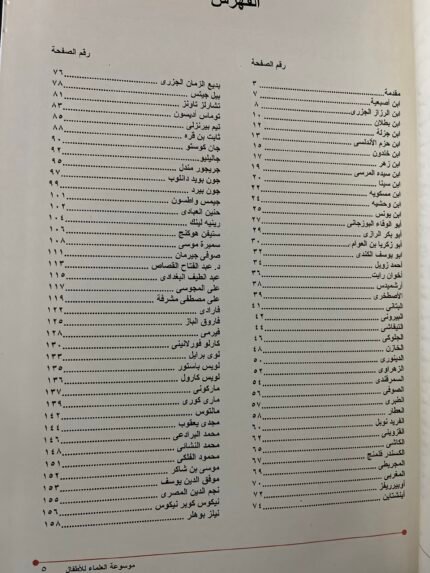 الفهرس
رقم الصفحة
مقدمة ٣
ابن أصيبعة ٧
ابن الرزاز الجزرى ٨
ابن بطلان ١٠
ابن جزلة ١٢
ابن حزم الأندلسى ١٣
ابن خلدون ١٥
ابن زهر ١٧
ابن سيده المرسى ١٩
ابن سينا ٢٠
ابن مسكويه ٢٢
ابن وحشية ٢٤
ابن يونس ٢٥
أبو الوفاء البوزجانى ٢٧
أبو بكر الرازى ٢٩
أبو زكريا بن العوام ٣٠
أبو يوسف الكندى ٣٢
أحمد زويل ٣٤
أخوان رايت ٣٦
أرشميدس ٣٨
الأصطخرى ٣٩
البتانى ٤١
البيرونى ٤٢
التيفاشى ٤٤
الجلدكى ٤٦
الخازن ٤٨
الدينورى ٥٠
الزهراوى ٥٢
السمرقندى ٥٤
الصوفى ٥٦
الطبرى ٥٧
العطار ٥٨
الفريد نوبل ٦٠
القزوينى ٦٢
الكاشى ٦٥
الكسندر فلمنج ٦٧
المجريطى ٦٩
المغربى ٧٠
٧٢
أينشتاين ٧٤
رقم الصفحة
بديع الزمان الجزرى ٧٦
بيل جيتس ٧٨
تشارلز تاونز ٨١
توماس اديسون ٨٣
تيم بيرنزلى ٨٥
ثابت بن قرة ٨٨
جان كوستو ٩٠
جاليليو ٩٢
جريجور مندل ٩٥
جون بويد دانلوب ٩٧
جون بيرد ٩٩
جيمس واطسون ١٠١
حنين العبادى ١٠٢
رينيه لينك ١٠٤
ستيفن هوكنج ١٠٦
سميرة موسى ١٠٨
صوفى جيرمان ١١١
د. عبد الفتاح القصاص ١١٣
عبد الطيف البغدادى ١١٥
على المجوسى ١١٧
على مصطفى مشرفة ١١٩
فارادى ١٢٢
فاروق الباز ١٢٥
فيرمى ١٢٨
كارلو فورلانينى ١٣٠
لوى برايل ١٣٣
لويس باستور ١٣٥
لويس كارول ١٣٦
ماركونى ١٣٧
مارى كورى ١٣٩
مالثوس ١٤٢
مجدى يعقوب ١٤٤
محمد البرادعى ١٤٦
محمد النشائى ١٤٨
محمود الفلكى ١٥١
موسى بن شاكر ١٥٢
موفق الدين يوسف ١٥٣
نجم الدين المصرى ١٥٥
نيكوس كوبر نيكوس ١٥٦
نيلز بوهلر ١٥٨
موسوعة العلماء للأطفال ٥